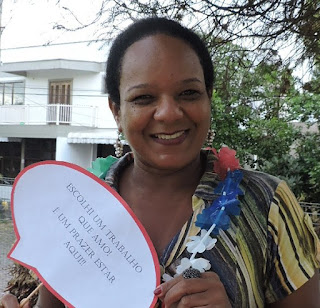 ESCOLHI UM TRABALHO
QUE AMO!
E UM PRAZER ESTAR
AQUI!!